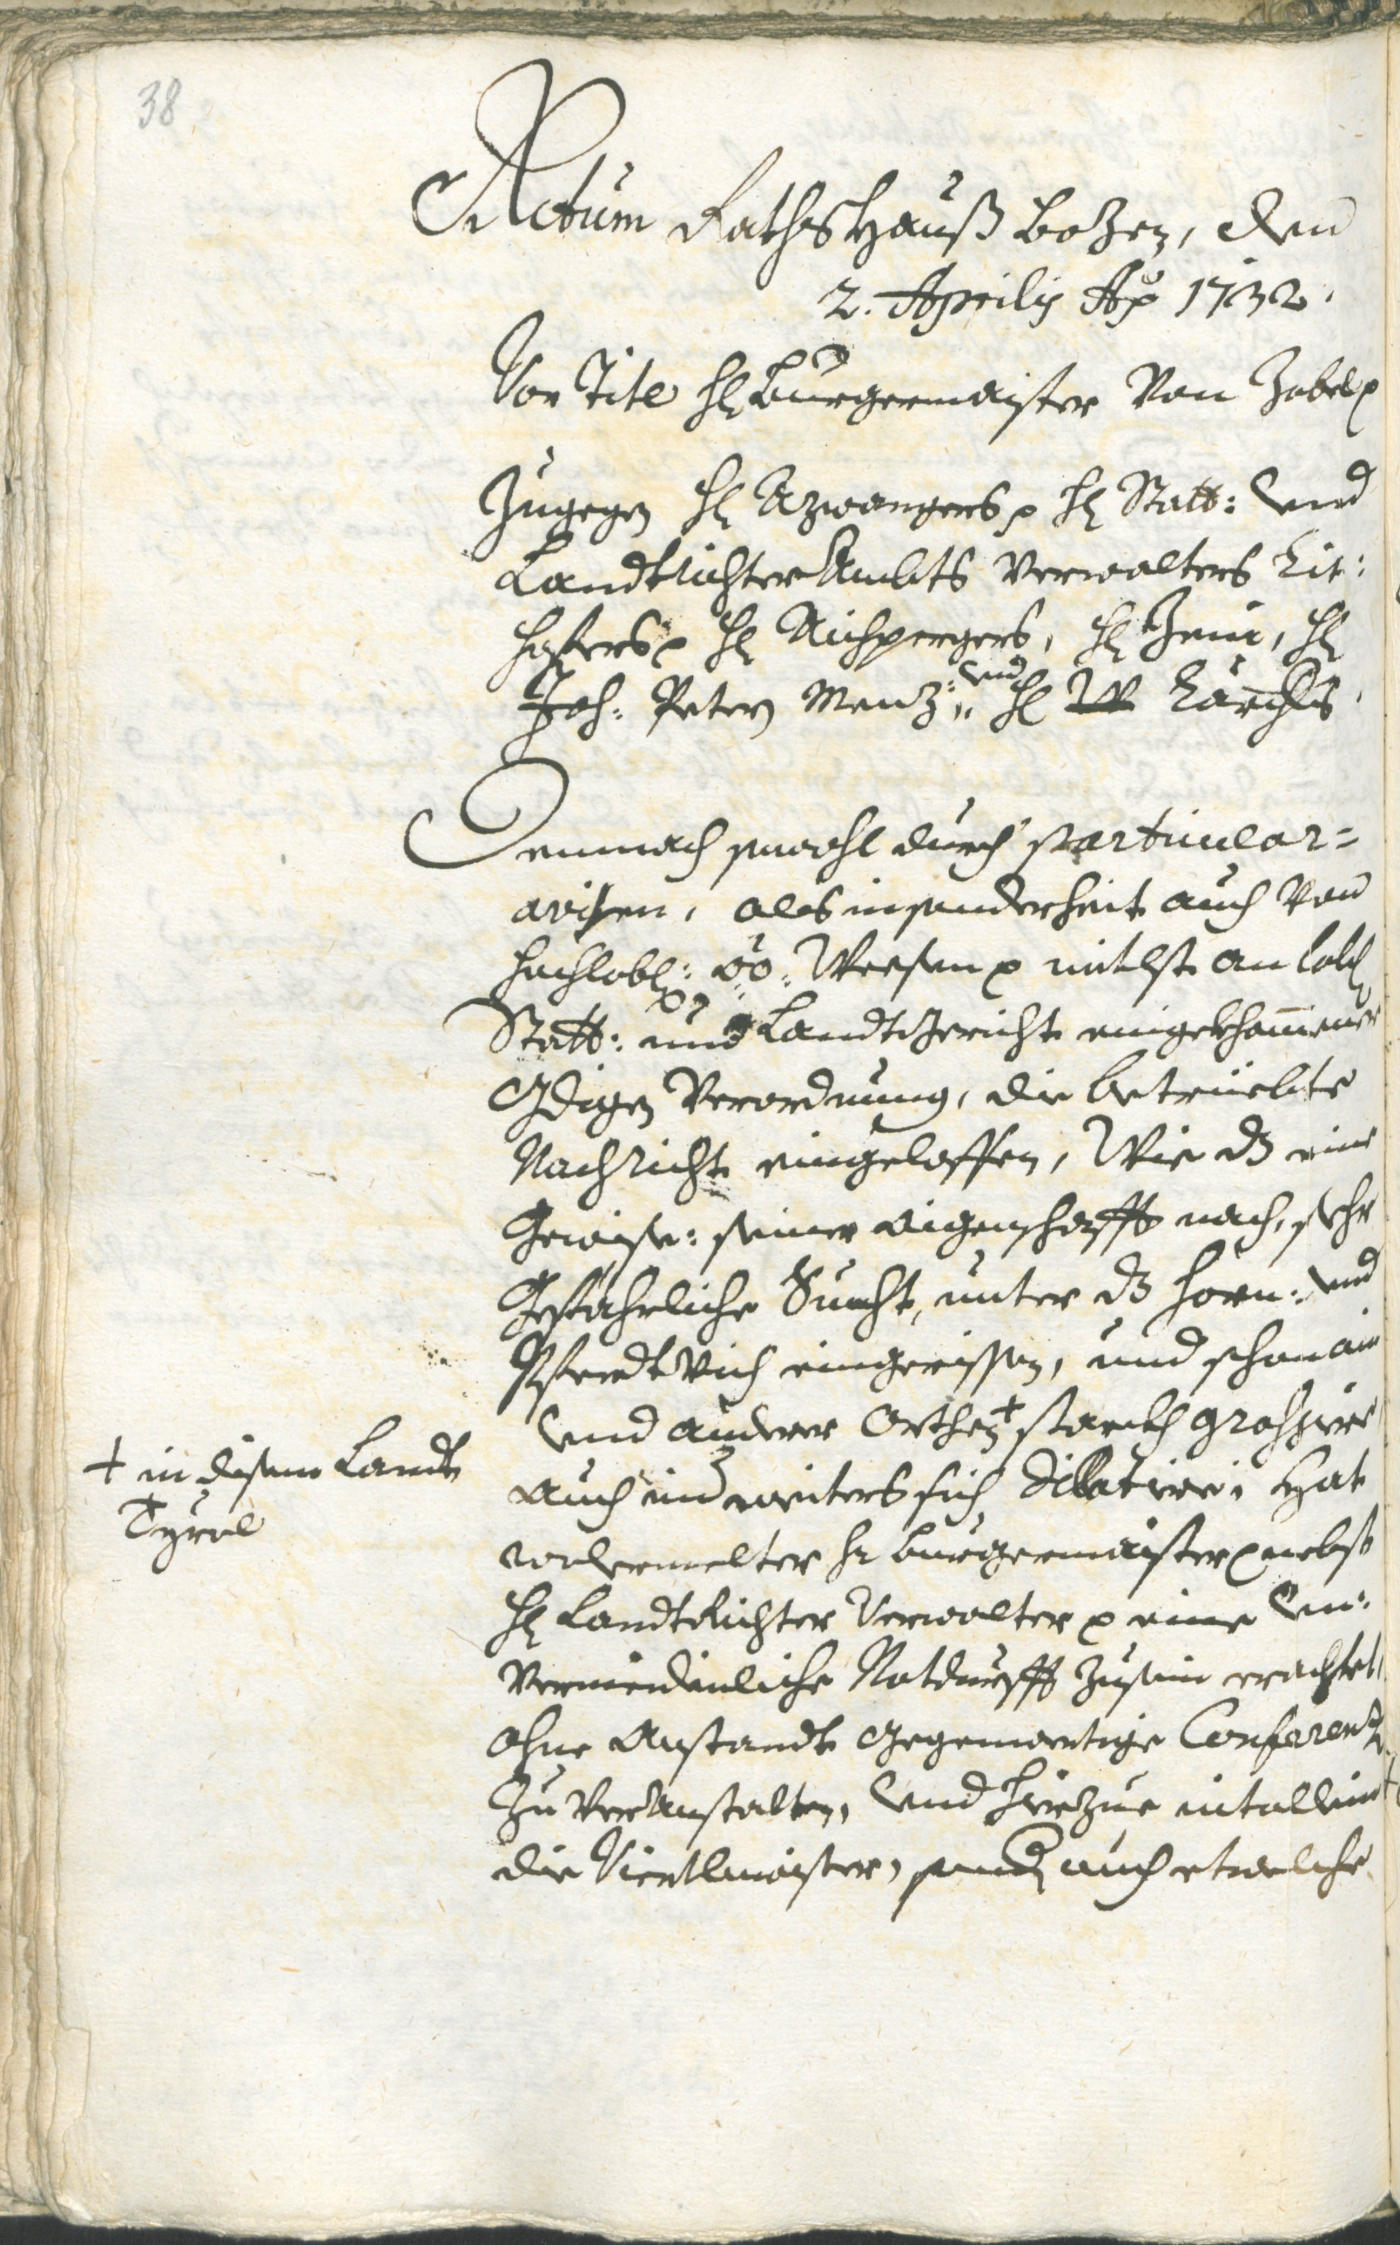 38
Actum RathsHauß Bozen, den
2. Aprilis Ao 1732.
Vor Titl H Burgermaister Von Zobel
Zugegen H Azwangers H Statt: und
LandtrichterAmbts Verwalters Lit:
H Aichpergers, H H
Joh: Peter Menz: und H
Demnach sowohl durch particular=
avisen, als insonderheit auch von
hochlobl: oö: Weesen mitlst an lobl
Statt: und LandtGericht eingekhomener
Gdigen Verordnung, die betrüebte
Nachricht eingeloffen, Wie dz eine
Gewise: seiner aigenschafft nach, sehr
Gefährliche Sucht, unter dz Horn: und
Pferdt Vich eingerissen, und schon ain
und anderer Orthen + starckh grassiere
+ in disem Landt
Tyrol
auch weiters sich dilatire; Hat
wolvermelter Hr Burgermaister nebst
H LandtRichter Verwalter eine Un:
Vermeidenliche Notdurfft zusein erachtet,
ohne Anstandt gegenwertige Conferenz
zu Veranstalten, und hierzue nit allein
die Viertlmaister, sond auch etweliche